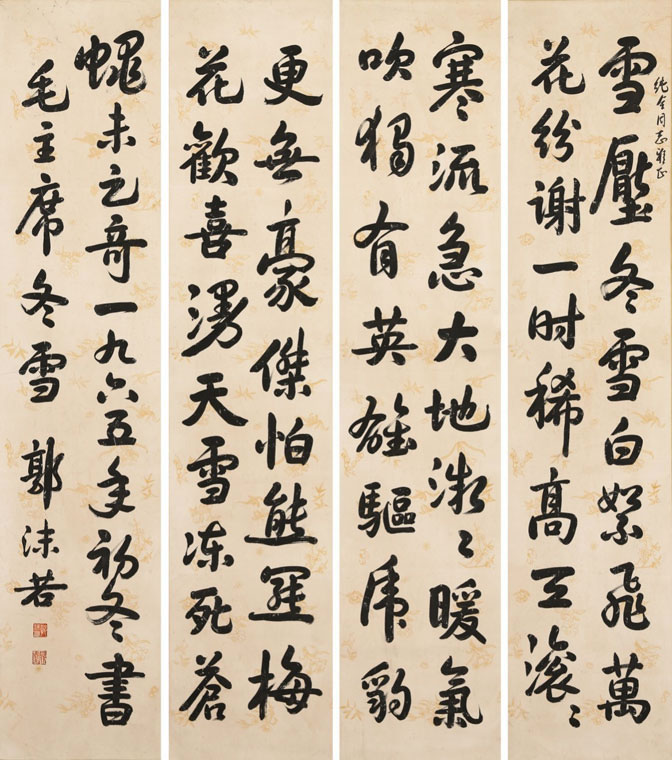 纯全同志雅正
雪壓冬雪白絮飛萬
花纷谢一时稀高天滚々
寒流急大地微々暖氣
吹獨有英雄驅虎豹
更無豪傑怕熊羆梅
花歡喜漫天雪冻死蒼
蝇未足奇一九六五年初冬書
毛主席冬雪 郭沫若